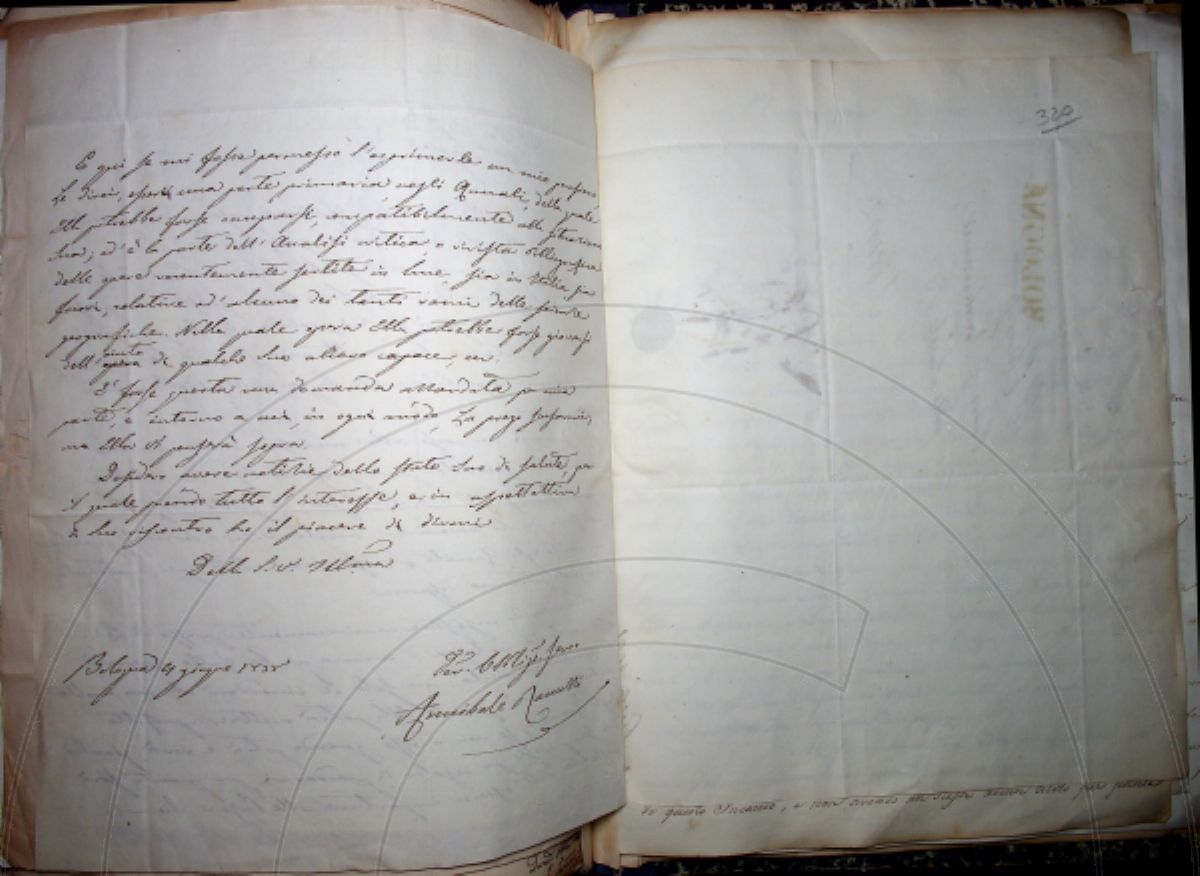 E qui se mi fosse permesso l'esprimerle un mio
Le direi, esservi una parte primaria negli Annali, della quale
Ella potrebbe forse
sua, ed è la parte dell'Analisi critica, o rivista bibliografica
delle opere recentemente sortite in luce, sia in Italia sia
fuori, relative ad alcuno dei tanti rami delle scienze
geografiche. Nella quale opera Ella potrebbe forse giovarsi
dell' aiuto di qualche suo allievo capace, ec.
È forse questa una domanda azzardata per mia
parte, e intorno a ciò, in ogni modo, La prego scusarmi,
ma Ella vi penserà sopra.
Desidero avere notizie dello stato Suo di salute, per
il quale prendo tutto l'interesse, e in aspettativa
di suo riscontro ho il piacere di dirmi
Della S. V. Ill.ma
Bologna giugno
Annibale Ranuzzi
320
BOLOGNA
di questo Incanto, e non avendo